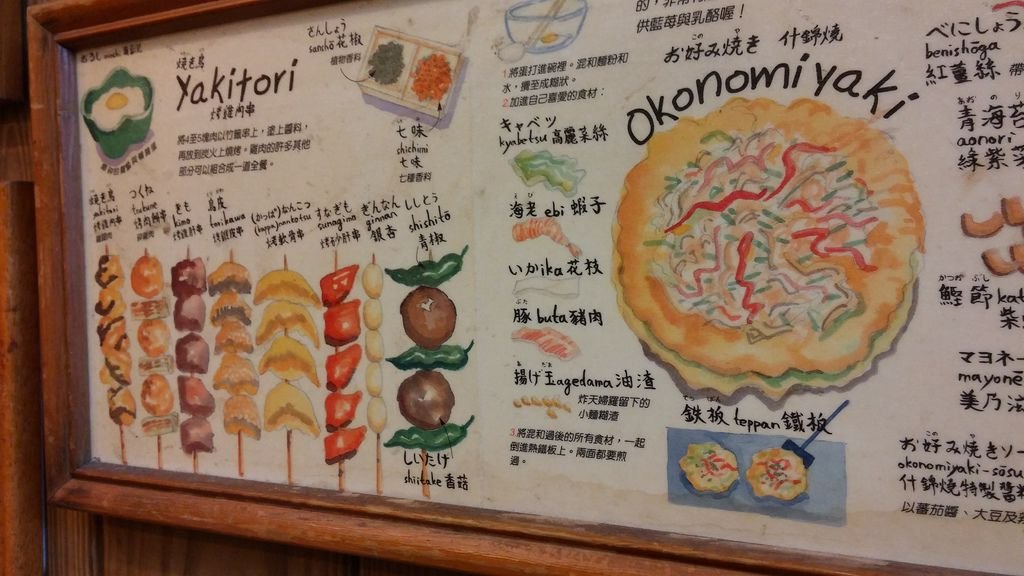 焼き鳥
Yakitori
烤雞肉串
將4至5塊肉以竹籤串上，塗上醬料，
再放到炭火上燒烤。雞肉的許多其他
部分可以組合成一道全餐。
さんしょう
sanshō 花椒
植物香料
七味
shichimi
七味
七種香料
つくね
tsukune
きも
kimo
烤雞肝串
鳥皮
torikawa
烤雞皮串
(かっぱ)なんこつ
(kappa)nankotsu
烤軟骨串
すなぎも
sunagimo
烤砂肝串
ぎんなん
ginnan
銀杏
ししとう
shishitō
青椒
しいたけ
shiitake 香菇
供藍苺與乳酪喔！
1.將蛋打進碗裡。混和麵粉和
水，攪至成糊狀。
2.加進自己喜愛的食材：
キャベツ
kyabetsu 高麗菜絲
海老 ebi 蝦子
いか ika 花枝
ぶた
豚 buta 豬肉
あ だま
揚げ玉 agedama 油渣
炸天婦羅留下的
小麵糊渣
3.將混和過後的所有食材，一起
倒進熱鐵板上。兩面都要煎
過。
お好み焼き 什錦燒
Okonomiyaki
てっぱん
鉄板 teppan 鐵板
べにしょう
benishōga
紅薑絲
あおのり
青海苔
aonori
綠紫菜
かつお ぶし
鰹節
マヨネー
mayonē
美乃滋
お好み焼きソー
okonomiyaki-sōsu
什錦燒特製醬料
以蕃茄醬、大豆及